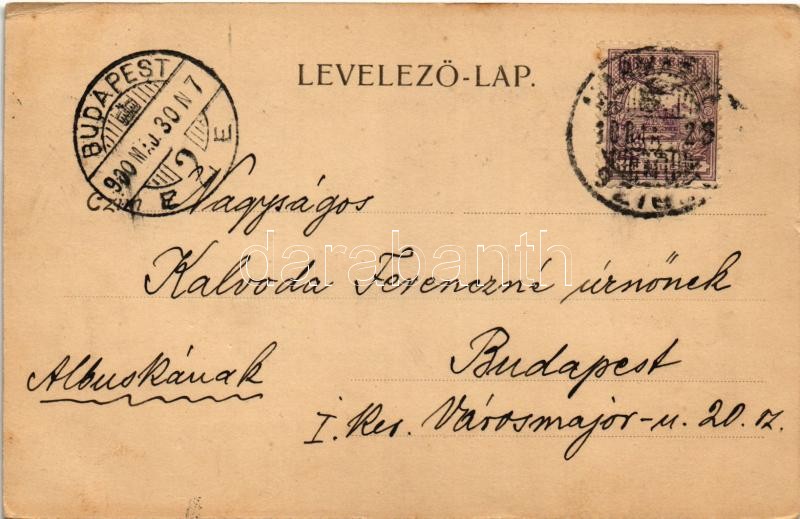 LEVELEZŐ-LAP.
BUDAPEST
900 MÁJ. 30 N 7
2
Czím
Nagyságos
Kalvoda Ferenczné úrnőnek
Budapest
Albuskának
I. Ker. Városmajor-u. 20. sz.
darabanth